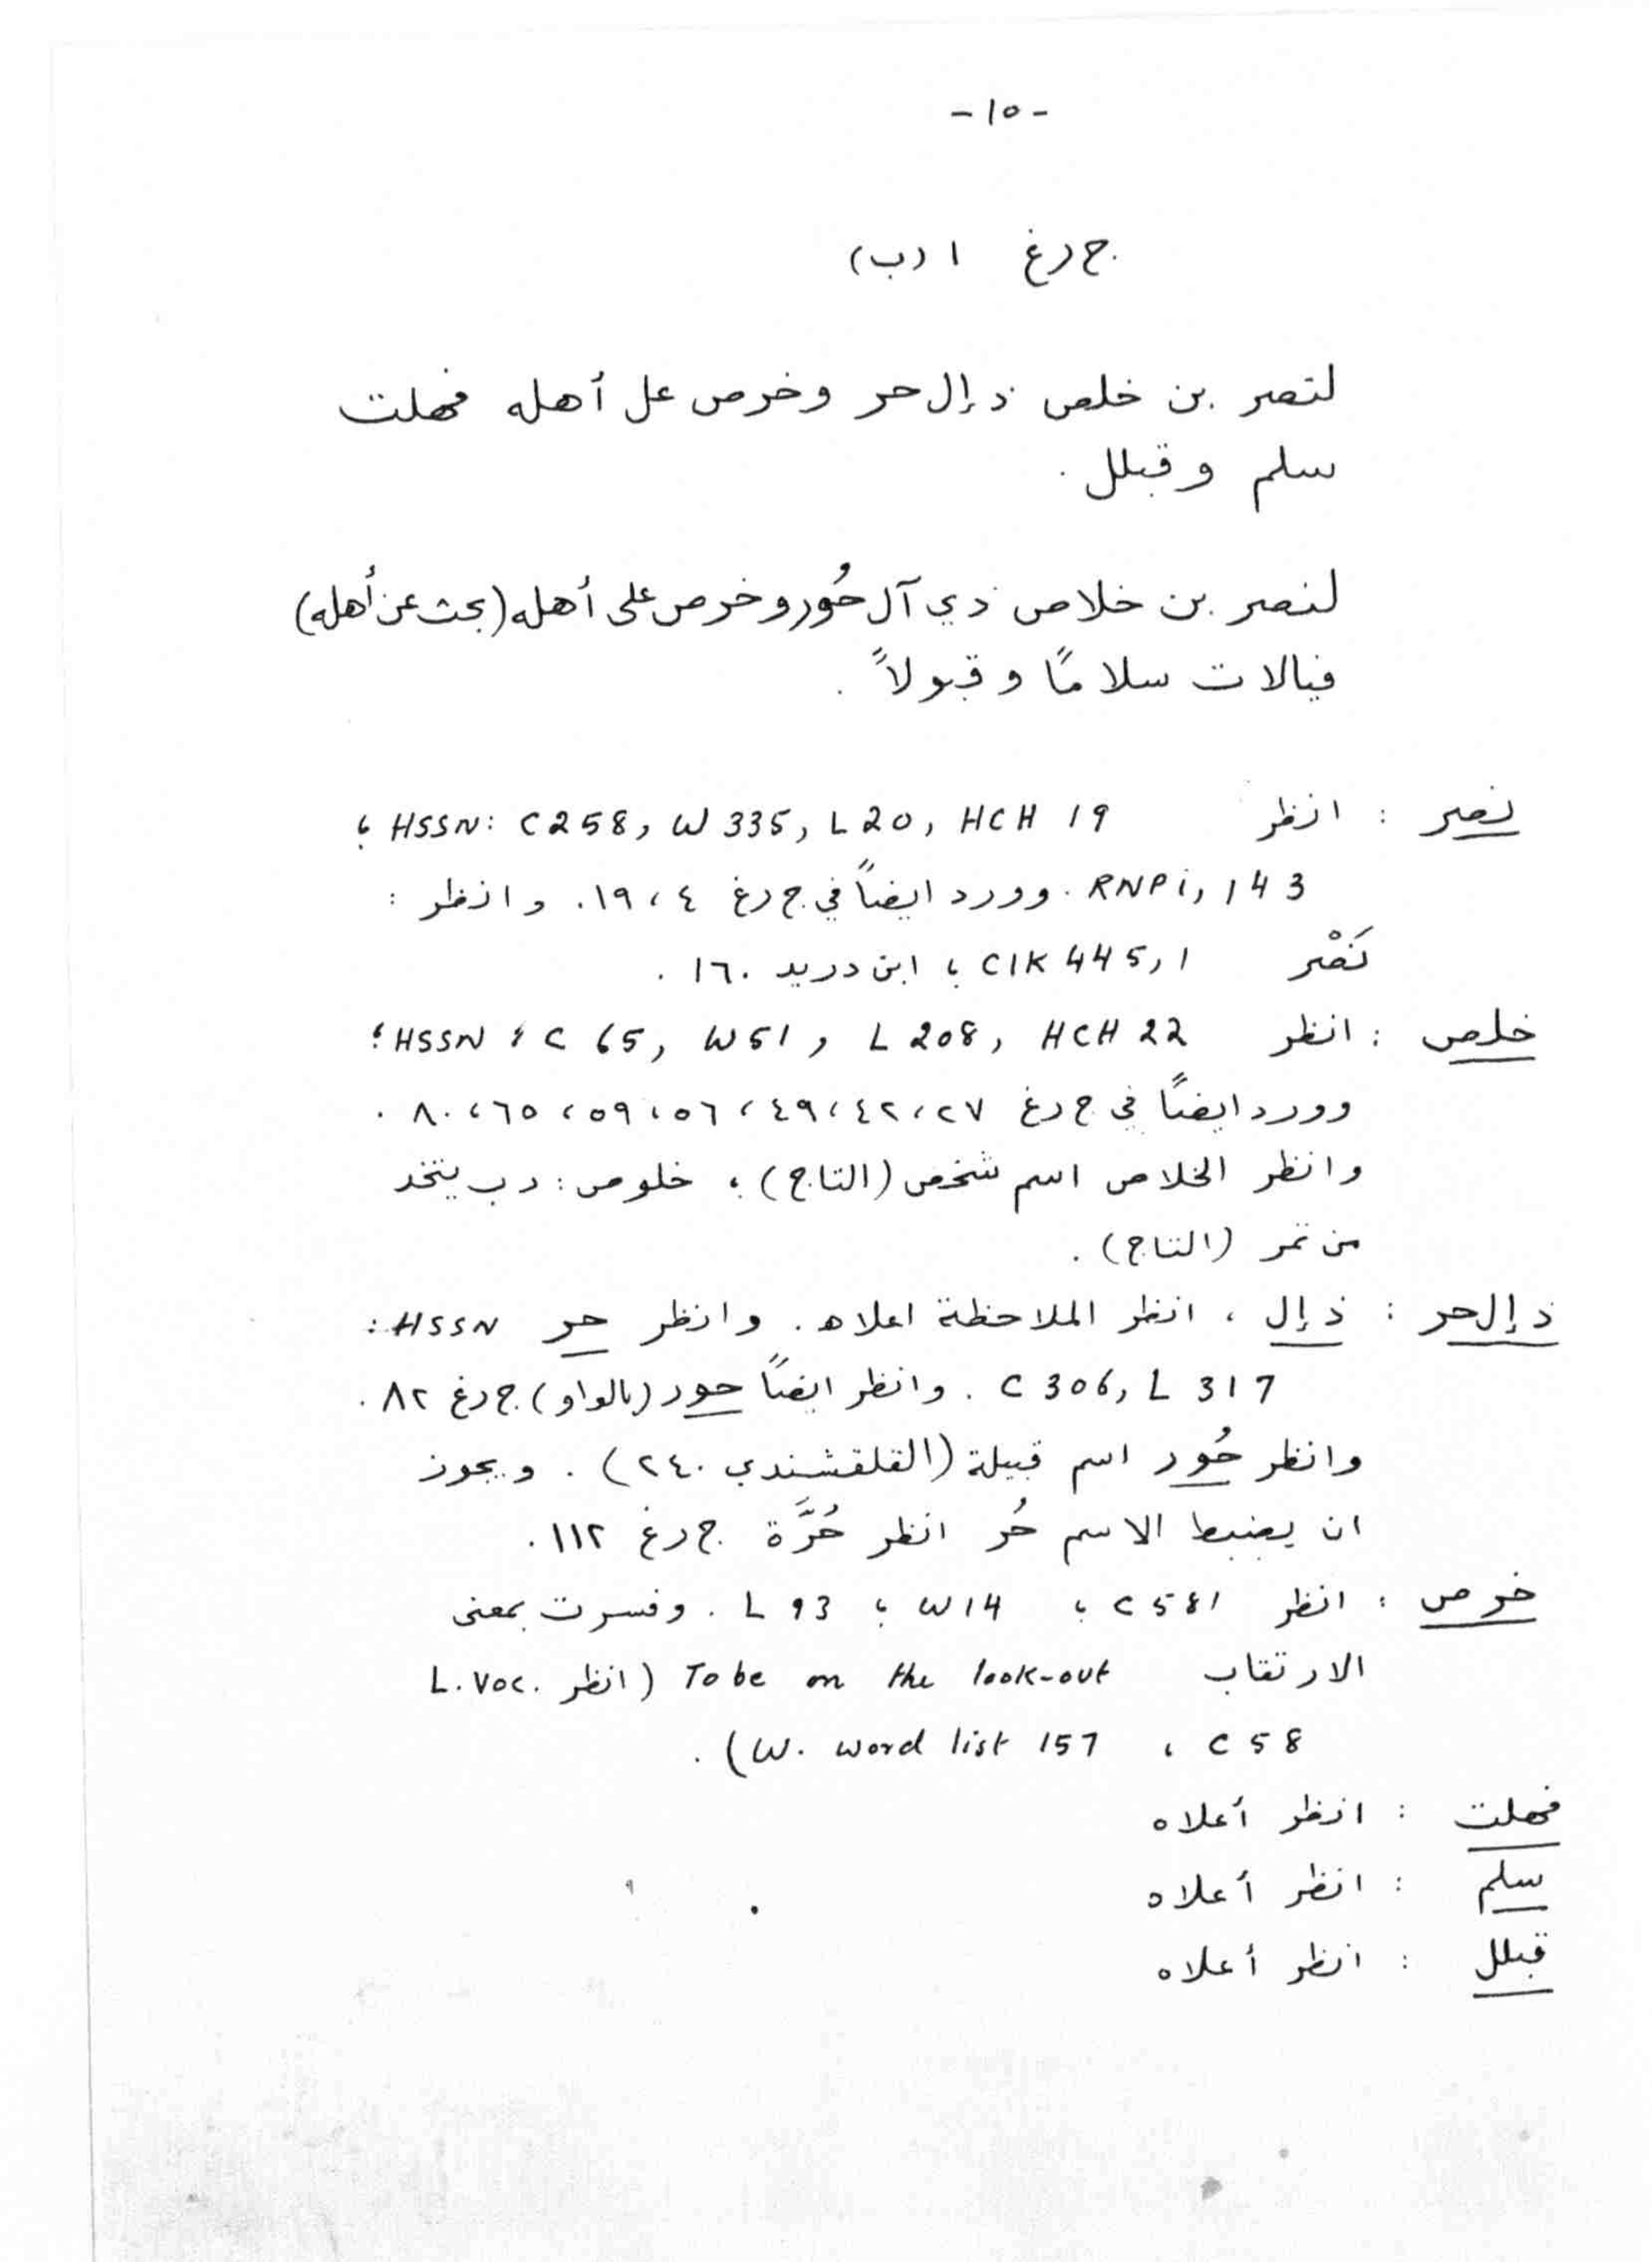 -١٥-
ج رغ ١ (ب)
لنصر بن خلص ذ إل حر وخرص عل أهله فهلت
سلم وقبلل .
لنصر بن خلاص ذي آل حُور وخرص على أهله (بحث عن أهله)
فيالات سلامًا وقبولاً .
نصر : انظر HSSN: C258, W 335, L20, HCH 19 ؛
RNP i, 143 . وورد ايضاً في ج رغ ٤ ، ١٩ . وانظر :
نَصْر CIK 445,1 ؛ ابن دريد ١٦٠ .
خلص : انظر HSSN : C 65, W51, L 208, HCH 22 ؛
وورد ايضاً في ج رغ ٢٧ ، ٤٢ ، ٤٩ ، ٥٦ ، ٥٩ ، ٦٥ ، ٨٠ .
وانظر الخلاص اسم شخص (التاج) ؛ خلوص : رب يتخذ
من تمر (التاج) .
ذ إل حر : ذ إل ، انظر الملاحظة اعلاه . وانظر حر HSSN :
C 306, L 317 . وانظر ايضاً حور (بالواو) ج رغ ٨٢ .
وانظر حُور اسم قبيلة (القلقشندي ٢٤٠) . ويجوز
ان يضبط الاسم حُر انظر حُرَّة ج رغ ١١٢ .
خرص : انظر C 581 ؛ W14 ؛ L 93 . وفسرت بمعنى
الارتقاب To be on the look-out (انظر L. Voc.
C 58 ، W. word list 157) .
فهلت : انظر أعلاه
سلم : انظر أعلاه
قبلل : انظر أعلاه